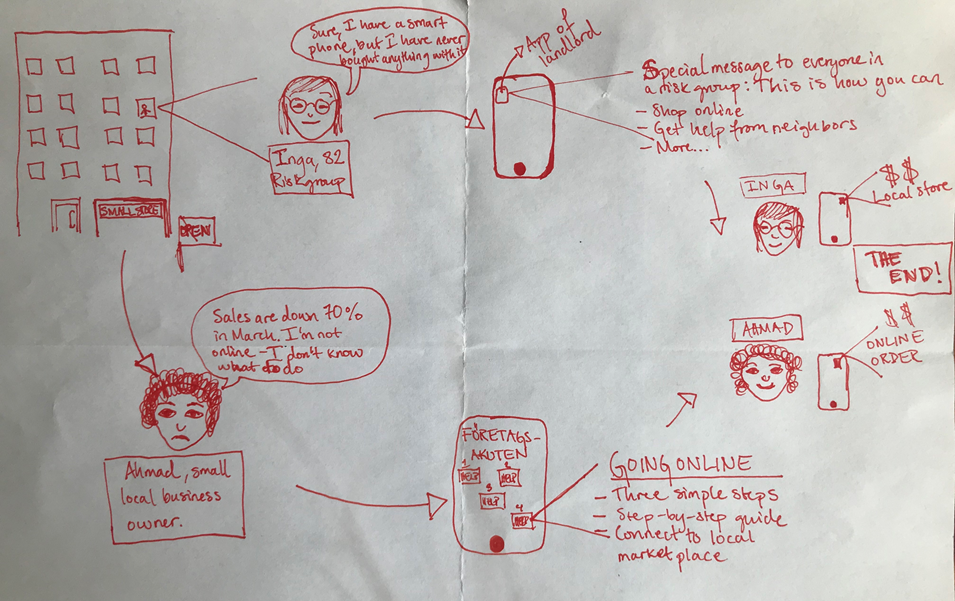 Sure, I have a smart
phone, but I have never
bought anything with it
Inga, 82
Riskgroup
SMALL STORE
OPEN
App of
landlord
Special message to everyone in
a risk group: This is how you can
- Shop online
- Get help from neighbors
- More...
INGA
$$
Local store
THE
END!
Sales are down 70%
in March. I'm not
online - I don't know
what to do
Ahmad, small
local business
owner.
FÖRETAGS-
AKUTEN
1
HELP
2
HELP
3
HELP
4
HELP
GOING ONLINE
- Three simple steps
- Step-by-step guide
- Connect to local
market place
AHMAD
$$
ONLINE
ORDER